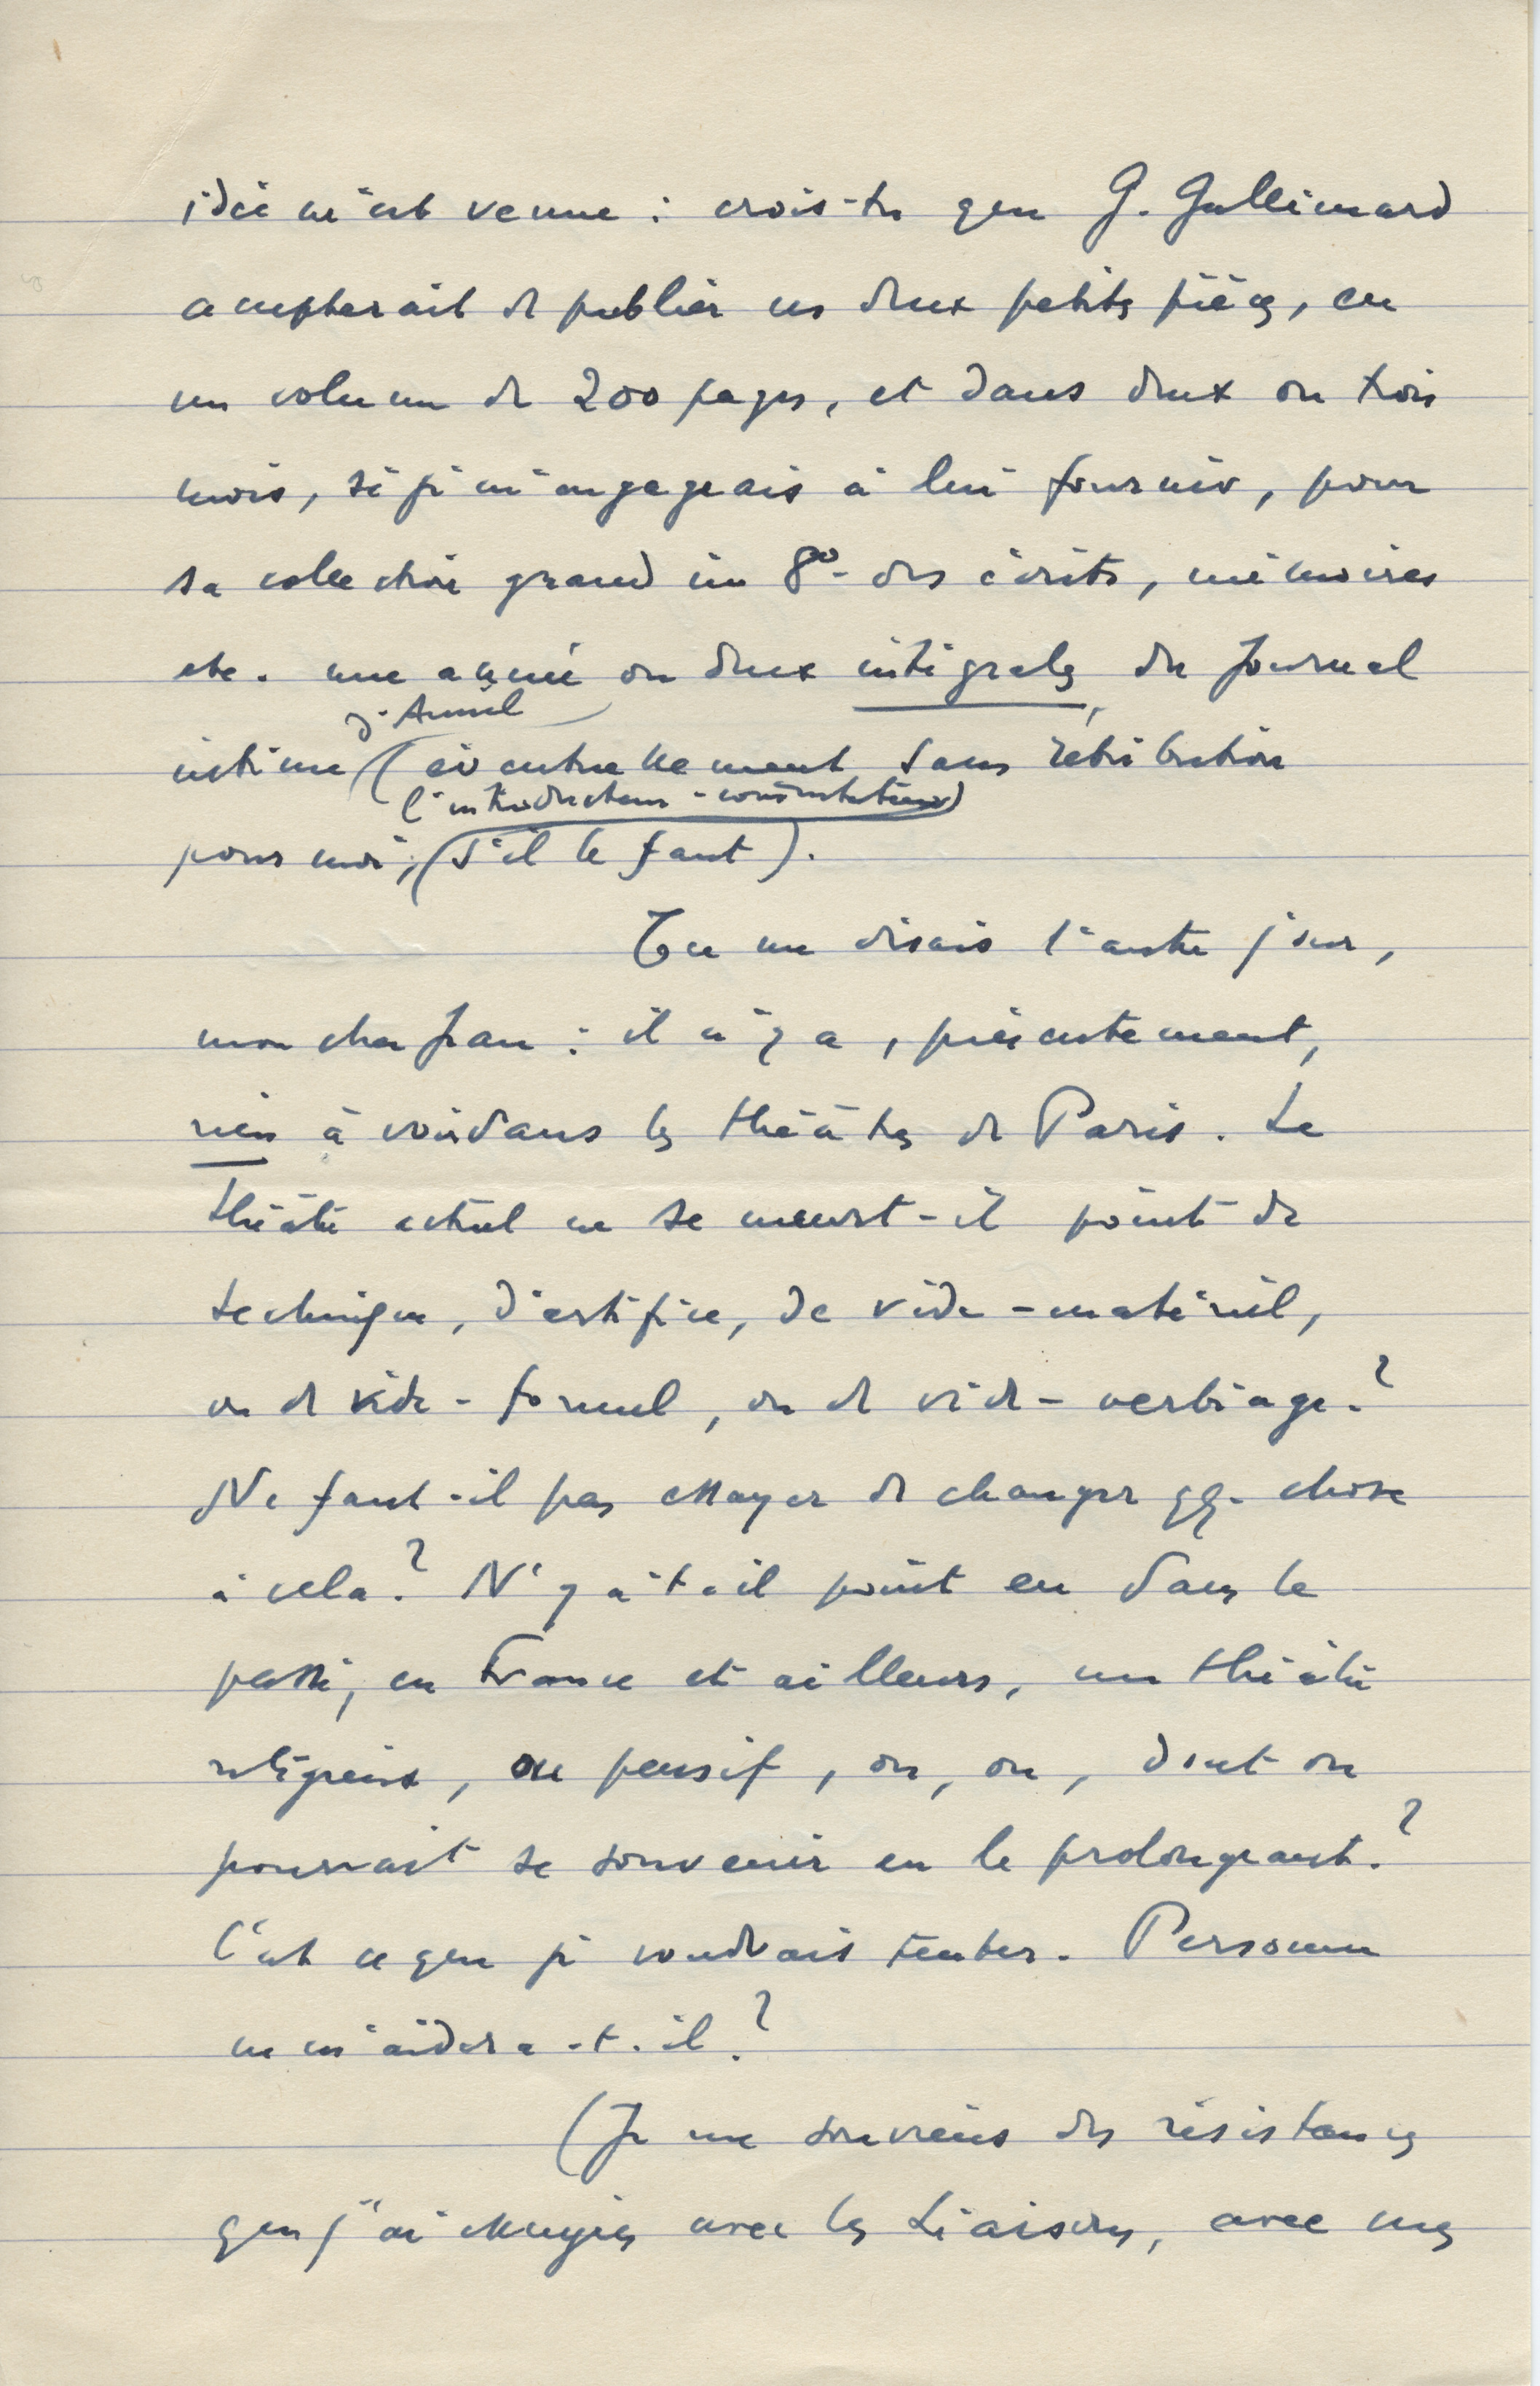 idée m'est venue : crois-tu que G. Gallimard
accepterait de publier ces deux petites pièces, en
un volume de 200 pages, et dans deux ou trois
mois, si je m'engageais à lui fournir, pour
sa collection grand in 8º - des écrits, mémoires
etc. une année ou deux intégrales, du Journal
d'Amiel
intime (éventuellement sans rétribution
l'introducteur - commentateur)
pour moi, (s'il le faut).
Tu me disais l'autre jour,
mon cher Jean : il n'y a, présentement,
rien à voir dans les théâtres de Paris. Le
théâtre actuel ne se meurt-il point de
technique, d'artifice, de vide - matériel,
ou de vide - formel, ou de vide - verbiage ?
Ne faut-il pas essayer de changer qq. chose
à cela ? N'y a-t-il point eu dans le
passé, en France et ailleurs, un théâtre
religieux, ou pensif, ou, ou, dont on
pourrait se souvenir en le prolongeant ?
C'est ce que je voudrais tenter. Personne
ne m'aidera-t-il ?
(Je me souviens des résistances
que j'ai essuyées avec les Liaisons, avec mes